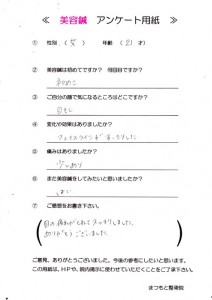 ≪ 美容鍼 アンケート用紙 ≫
① 性別 ( 女 ) 年齢 ( 21 才)
② 美容鍼は初めてですか? 何回目ですか?
初めて
③ ご自分の顔で気になるところはどこですか?
④ 変化や効果はありましたか?
フェイスラインがすっきりした
⑤ 痛みはありましたか?
少しあり
⑥ また美容鍼をしてみたいと思いましたか?
はい
⑦ ご感想をお書き下さい。
目の疲れがとれてスッキリしました。
ありがとうございました。
ご意見、ありがとうございました。今後の参考にしたいと思います。
この用紙は、HPや、院内掲示に使わせていただくことをご了承下さい。
まつもと整骨院